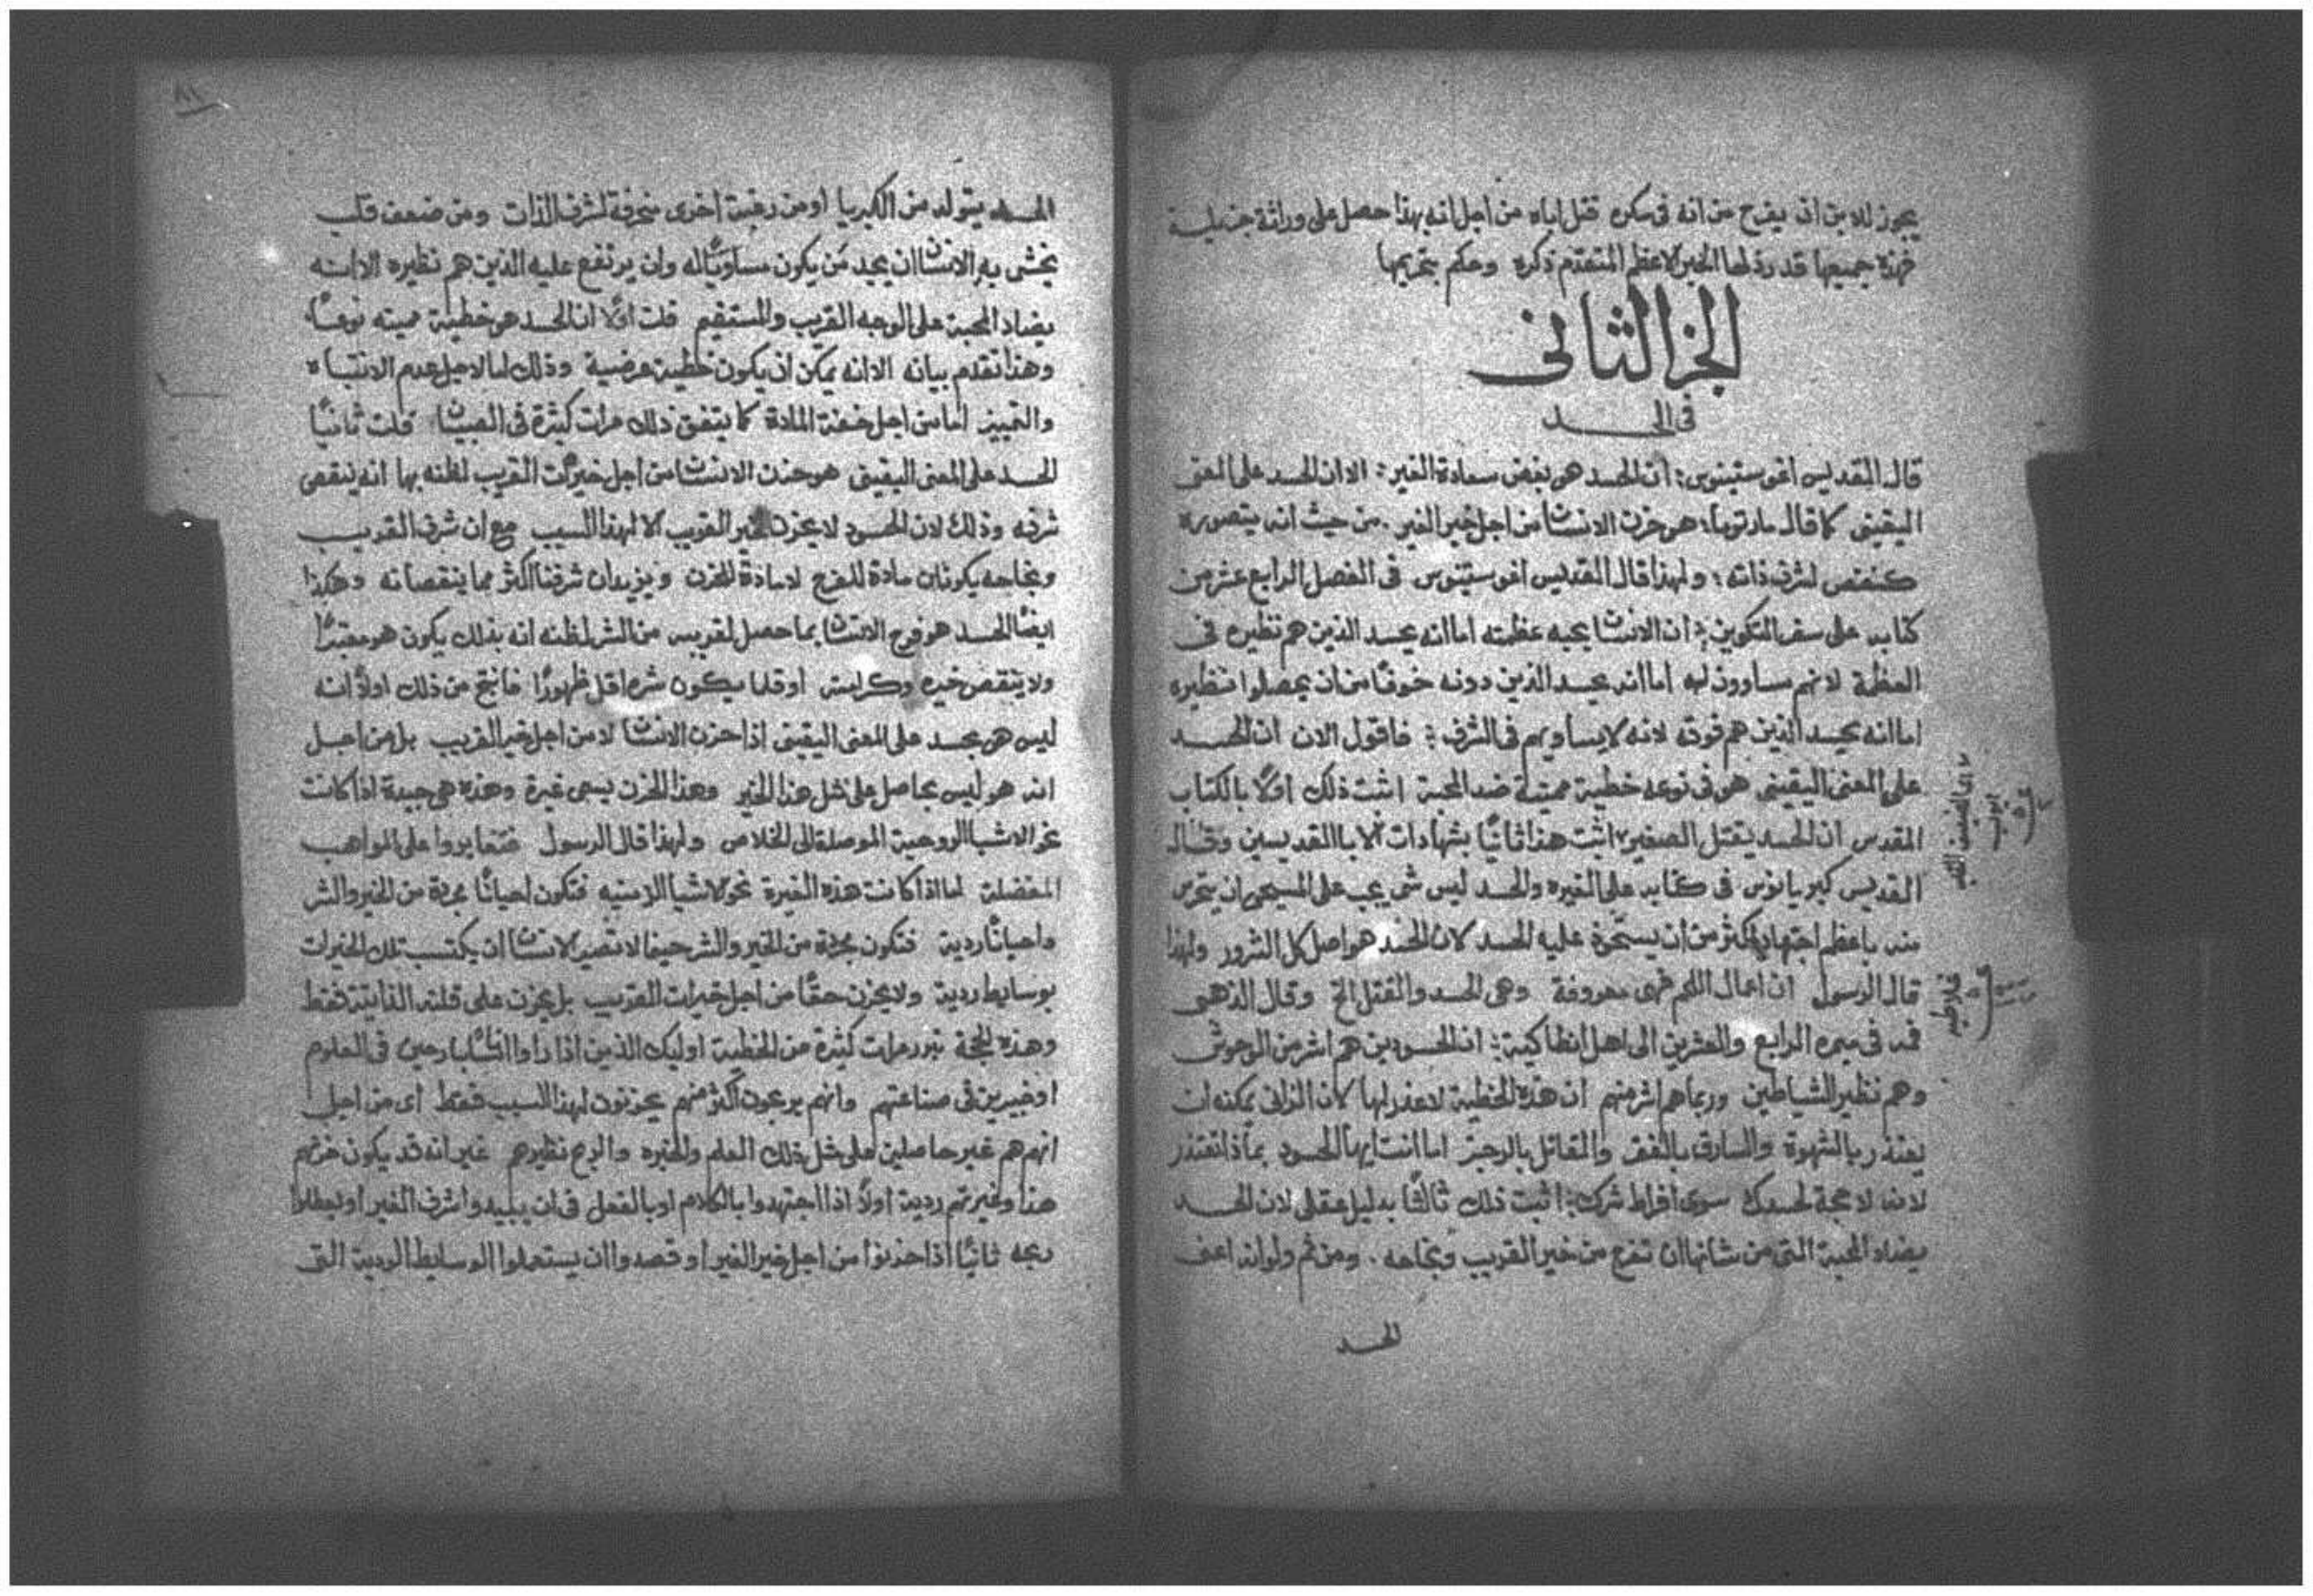 يجوز للابن ان يفرح من انه في سكره قتل اباه من اجل انه بهذا حصل على وراثة جزيلة
فهذه جميعها قد رذلها الحبر الاعظم المتقدم ذكره وحكم بتحريمها
الجز الثاني
في الحسد
قال القديس اغوستينوس: ان الحسد هو بغض سعادة الغير: الا ان الحسد على المعنى
اليقيني كما قال مار توما: هو حزن الانسان من اجل خير الغير. من حيث انه يتصوره
كمنقص لشرف ذاته: ولهذا قال القديس اغوستينوس في الفصل الرابع عشر من
كتابه على سفر التكوين: ان الانسان يحبه عظمته اما انه يحسد الذين هم نظيره في
العظمة لانهم مساوون له اما انه يحسد الذين دونه خوفًا من ان يحصلوا نظيره
اما انه يحسد الذين هم فوقه لانه لا يساويهم في الشرف: فاقول الان ان الحسد
على المعنى اليقيني هو في نوعه خطية مميتة ضد المحبة اثبت ذلك اولًا بالكتاب
المقدس ان الحسد يقتل الصغير اثبت هذا ثانيًا بشهادات الابا القديسين وقال
القديس كبريانوس في كتابه على الغيره والحسد ليس شي يجب على المسيحي ان يتحرس
منه باعظم اجتهاد اكثر من ان يستحوذ عليه الحسد لان الحسد هو اصل كل الشرور ولهذا
قال الرسول ان اعمال اللحم فهي معروفة وهي الحسد والقتل الخ وقال الذهبي
فمه في ميمره الرابع والعشرين الى اهل انطاكية: ان الحسودين هم اشر من الوحوش
وهم نظير الشياطين وربما هم اشر منهم ان هذه الخطية لا عذر لها لان الزاني يمكنه ان
يعتذر بالشهوة والسارق بالفقر والقاتل بالرجز اما انت ايها الحسود بماذا تعتذر
لانه لا حجة لحسدك سوى افراط شرك: اثبت ذلك ثالثًا بدليل عقلي لان الحسد
يضاد المحبة التي من شانها ان تفرح من خير القريب ونجاحه. ومن ثم ولو انه اعني
الحسد
ايوب
غلاطيه
٨١
الحسد يتولد من الكبريا او من رغبة اخرى منحرفة لشرف الذات ومن ضعف قلب
يخشى به الانسان ان يجد من يكون مساويًا له وان يرتفع عليه الذين هم نظيره الا انه
يضاد المحبة على الوجه القريب والمستقيم قلت اولًا ان الحسد هو خطية مميته نوعًا
وهذا تقدم بيانه الا انه يمكن ان يكون خطية عرضية وذلك اما لاجل عدم الانتباه
والتمييز اما من اجل خفة المادة كما يتفق ذلك مرات كثيرة في الصبيان قلت ثانيًا
الحسد على المعنى اليقيني هو حزن الانسان من اجل خيرات القريب لظنه بها انه ينقص
شرفه وذلك لان الحسود لا يحزن لخير القريب الا لهذا السبب مع ان شرف القريب
ونجاحه يكونان مادة للفرح لا مادة للحزن ويزيدان شرفنا اكثر مما ينقصانه وهكذا
ايضًا الحسد هو فرح الانسان بما حصل لقريبه من الشر لظنه انه بذلك يكون هو معتبرًا
ولا ينقص خيره وكرامته او قلما سيكون شره اقل ظهورًا فانتج من ذلك اولًا انه
ليس هو بحسد على المعنى اليقيني اذا حزن الانسان لا من اجل خير القريب بل من اجل
انه هو ليس بحاصل على مثل هذا الخير وهذا الحزن يسمى غيرة وهذه هي جيدة اذا كانت
نحو الاشيا الروحية الموصلة الى الخلاص ولهذا قال الرسول فتغايروا على المواهب
المفضلة اما اذا كانت هذه الغيرة نحو الاشيا الزمنيه فتكون احيانًا مجردة من الخير والشر
واحيانًا ردية فتكون مجردة من الخير والشر حينما لا تصير الانسان ان يكتسب تلك الخيرات
بوسايط ردية ولا يحزن حقًا من اجل خيرات القريب بل يحزن على قلته الذاتية فقط
وهذه الحجة تبرر مرات كثيرة من الخطية اوليك الذين اذا راوا اناسًا بارعين في العلوم
او خبيرين في صناعتهم وانهم يربحون اكثر منهم يحزنون لهذا السبب فقط اي من اجل
انهم هم غير حاصلين على مثل ذلك العلم والخبره والربح نظيرهم غير انه قد يكون حزنهم
هذا وغيرتهم ردية اولًا اذا اجتهدوا بالكلام او بالفعل في ان يبيدوا شرف الغير او يبطلوا
ربحه ثانيًا اذا حزنوا من اجل خير الغير او قصدوا ان يستعملوا الوسايط الردية التي